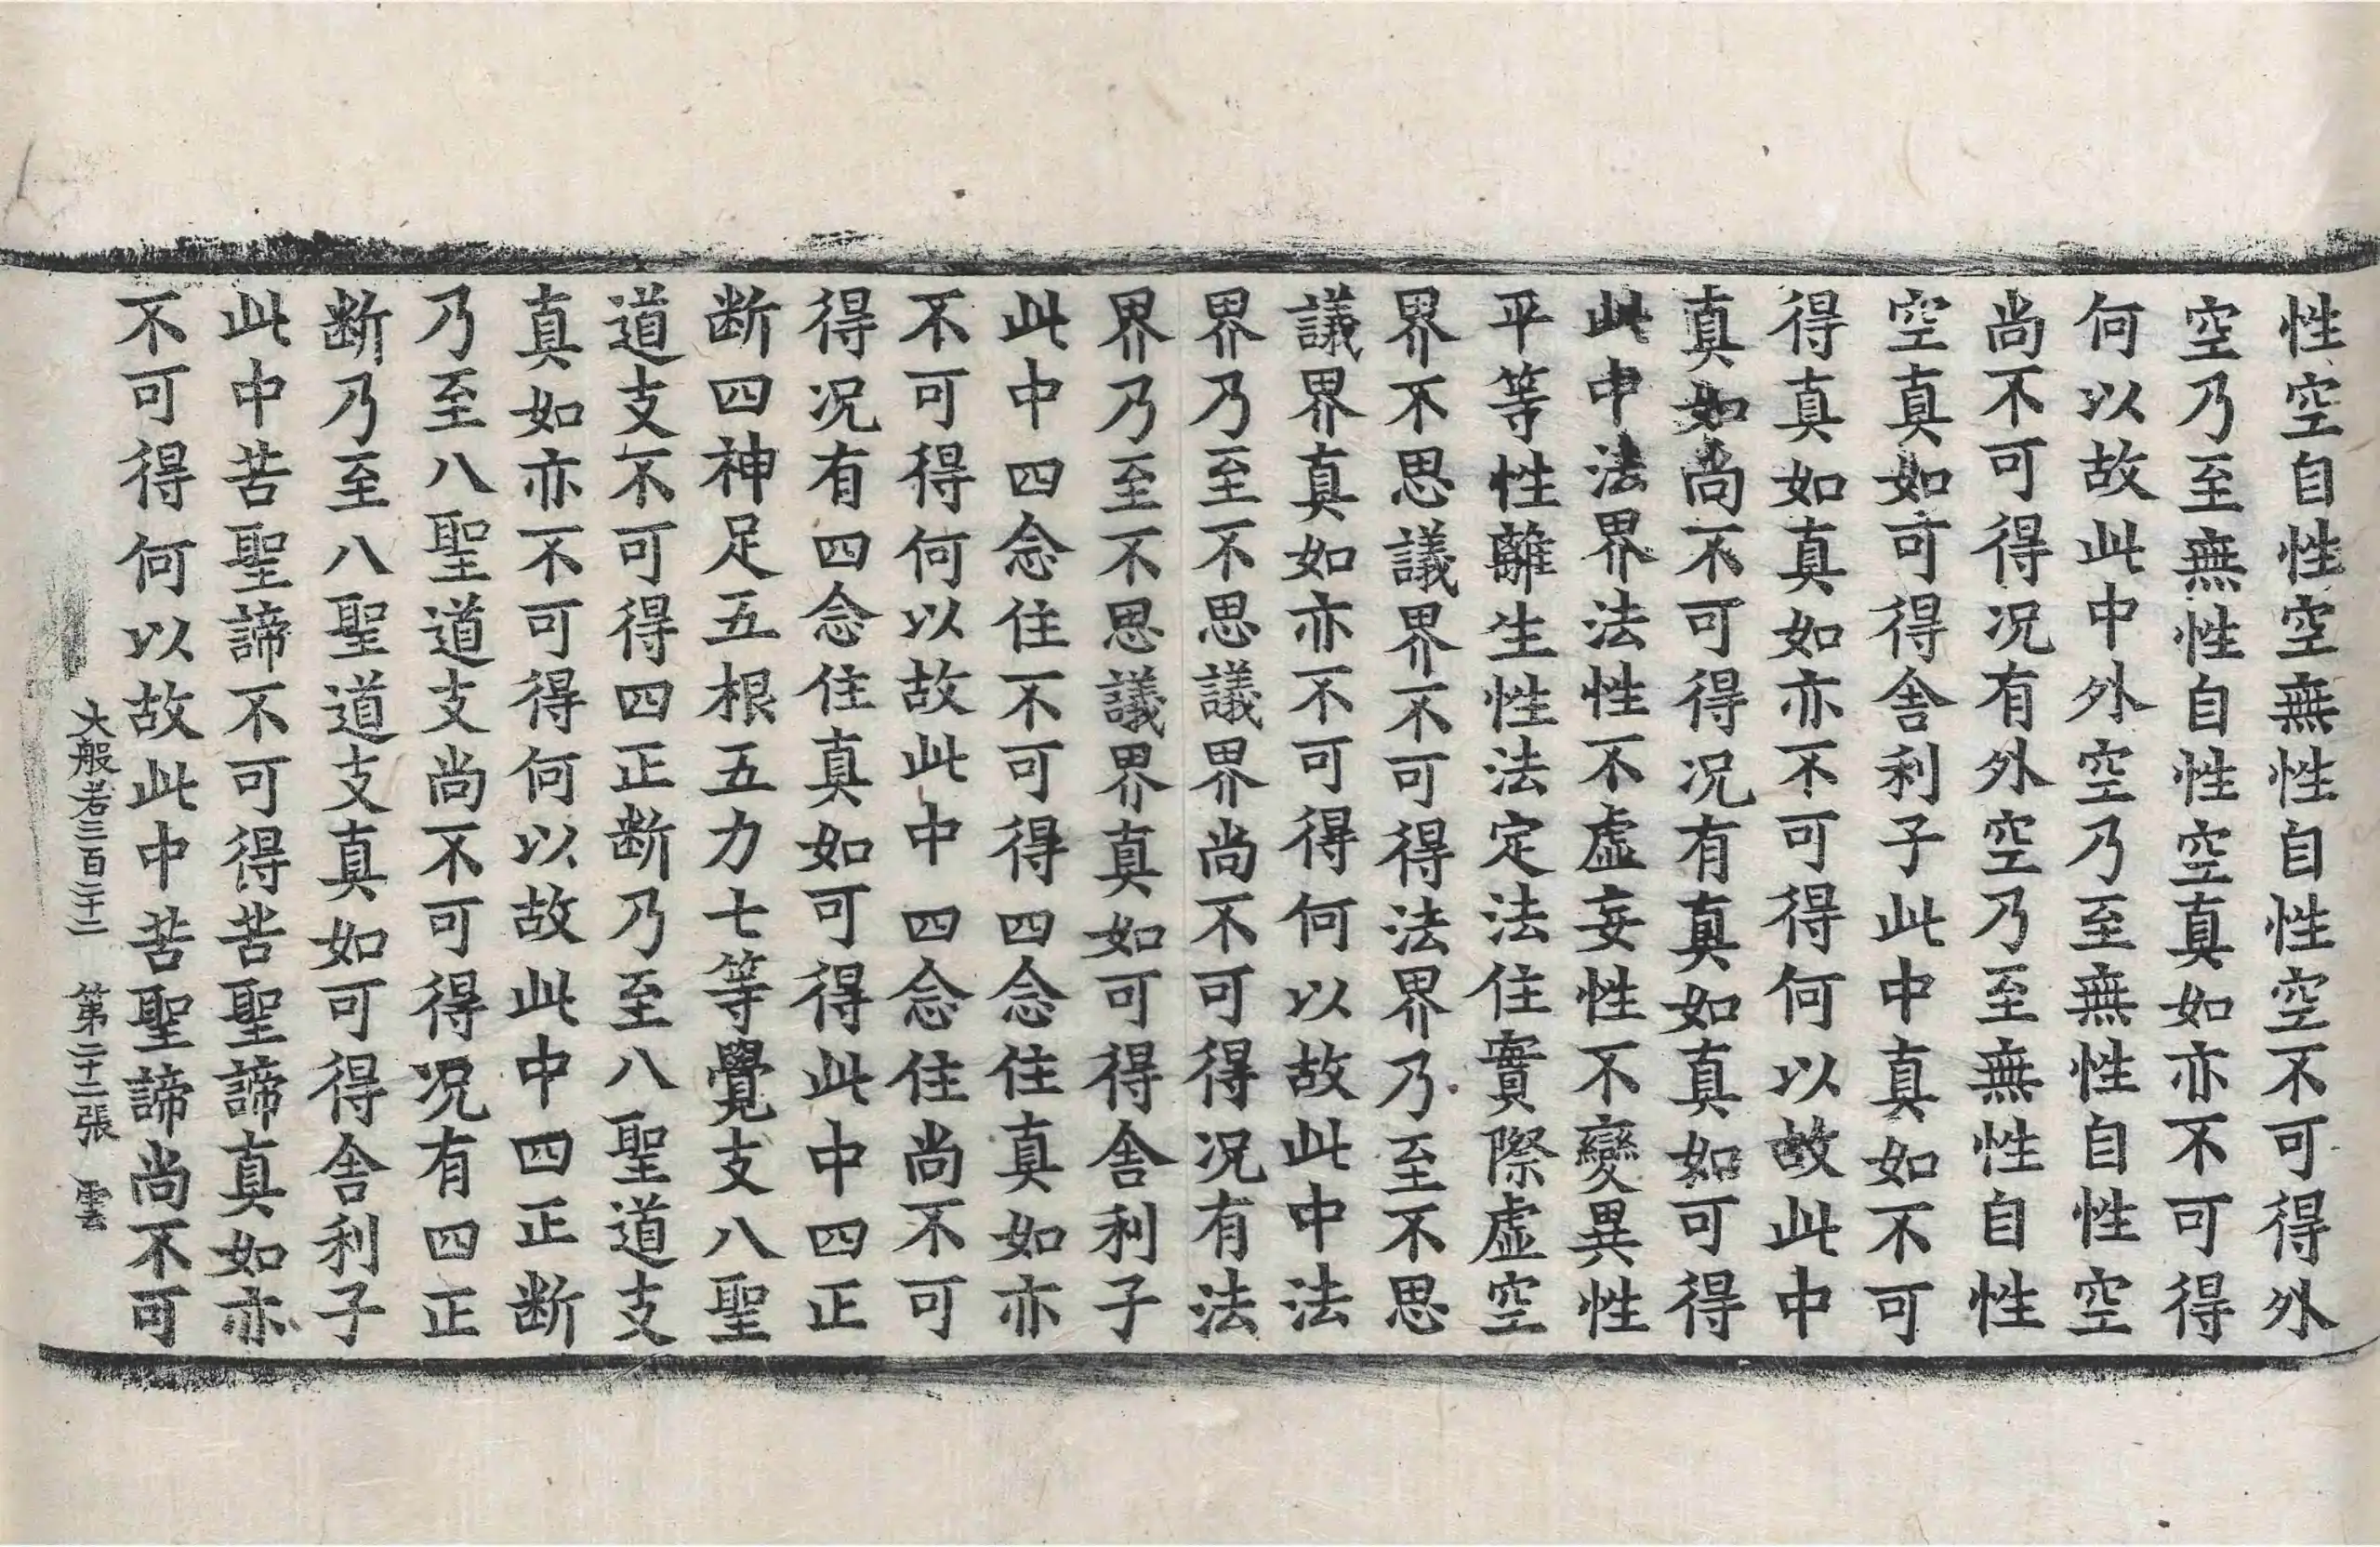 性空自性空無性自性空不可得外
空乃至無性自性空真如亦不可得
何以故此中外空乃至無性自性空
尚不可得况有外空乃至無性自性
空真如可得舎利子此中真如不可
得真如真如亦不可得何以故此中
真如尚不可得况有真如真如可得
此中法界法性不虛妄性不變異性
平等性離生性法定法住實際虛空
界不思議界不可得法界乃至不思
議界真如亦不可得何以故此中法
界乃至不思議界尚不可得况有法
界乃至不思議界真如可得舎利子
此中四念住不可得四念住真如亦
不可得何以故此中四念住尚不可
得况有四念住真如可得此中四正
断四神足五根五力七等覺支八聖
道支不可得四正断乃至八聖道支
真如亦不可得何以故此中四正断
乃至八聖道支尚不可得况有四正
断乃至八聖道支真如可得舎利子
此中苦聖諦不可得苦聖諦真如亦
不可得何以故此中苦聖諦尚不可
大般若三百二十二 第二十二張 雲